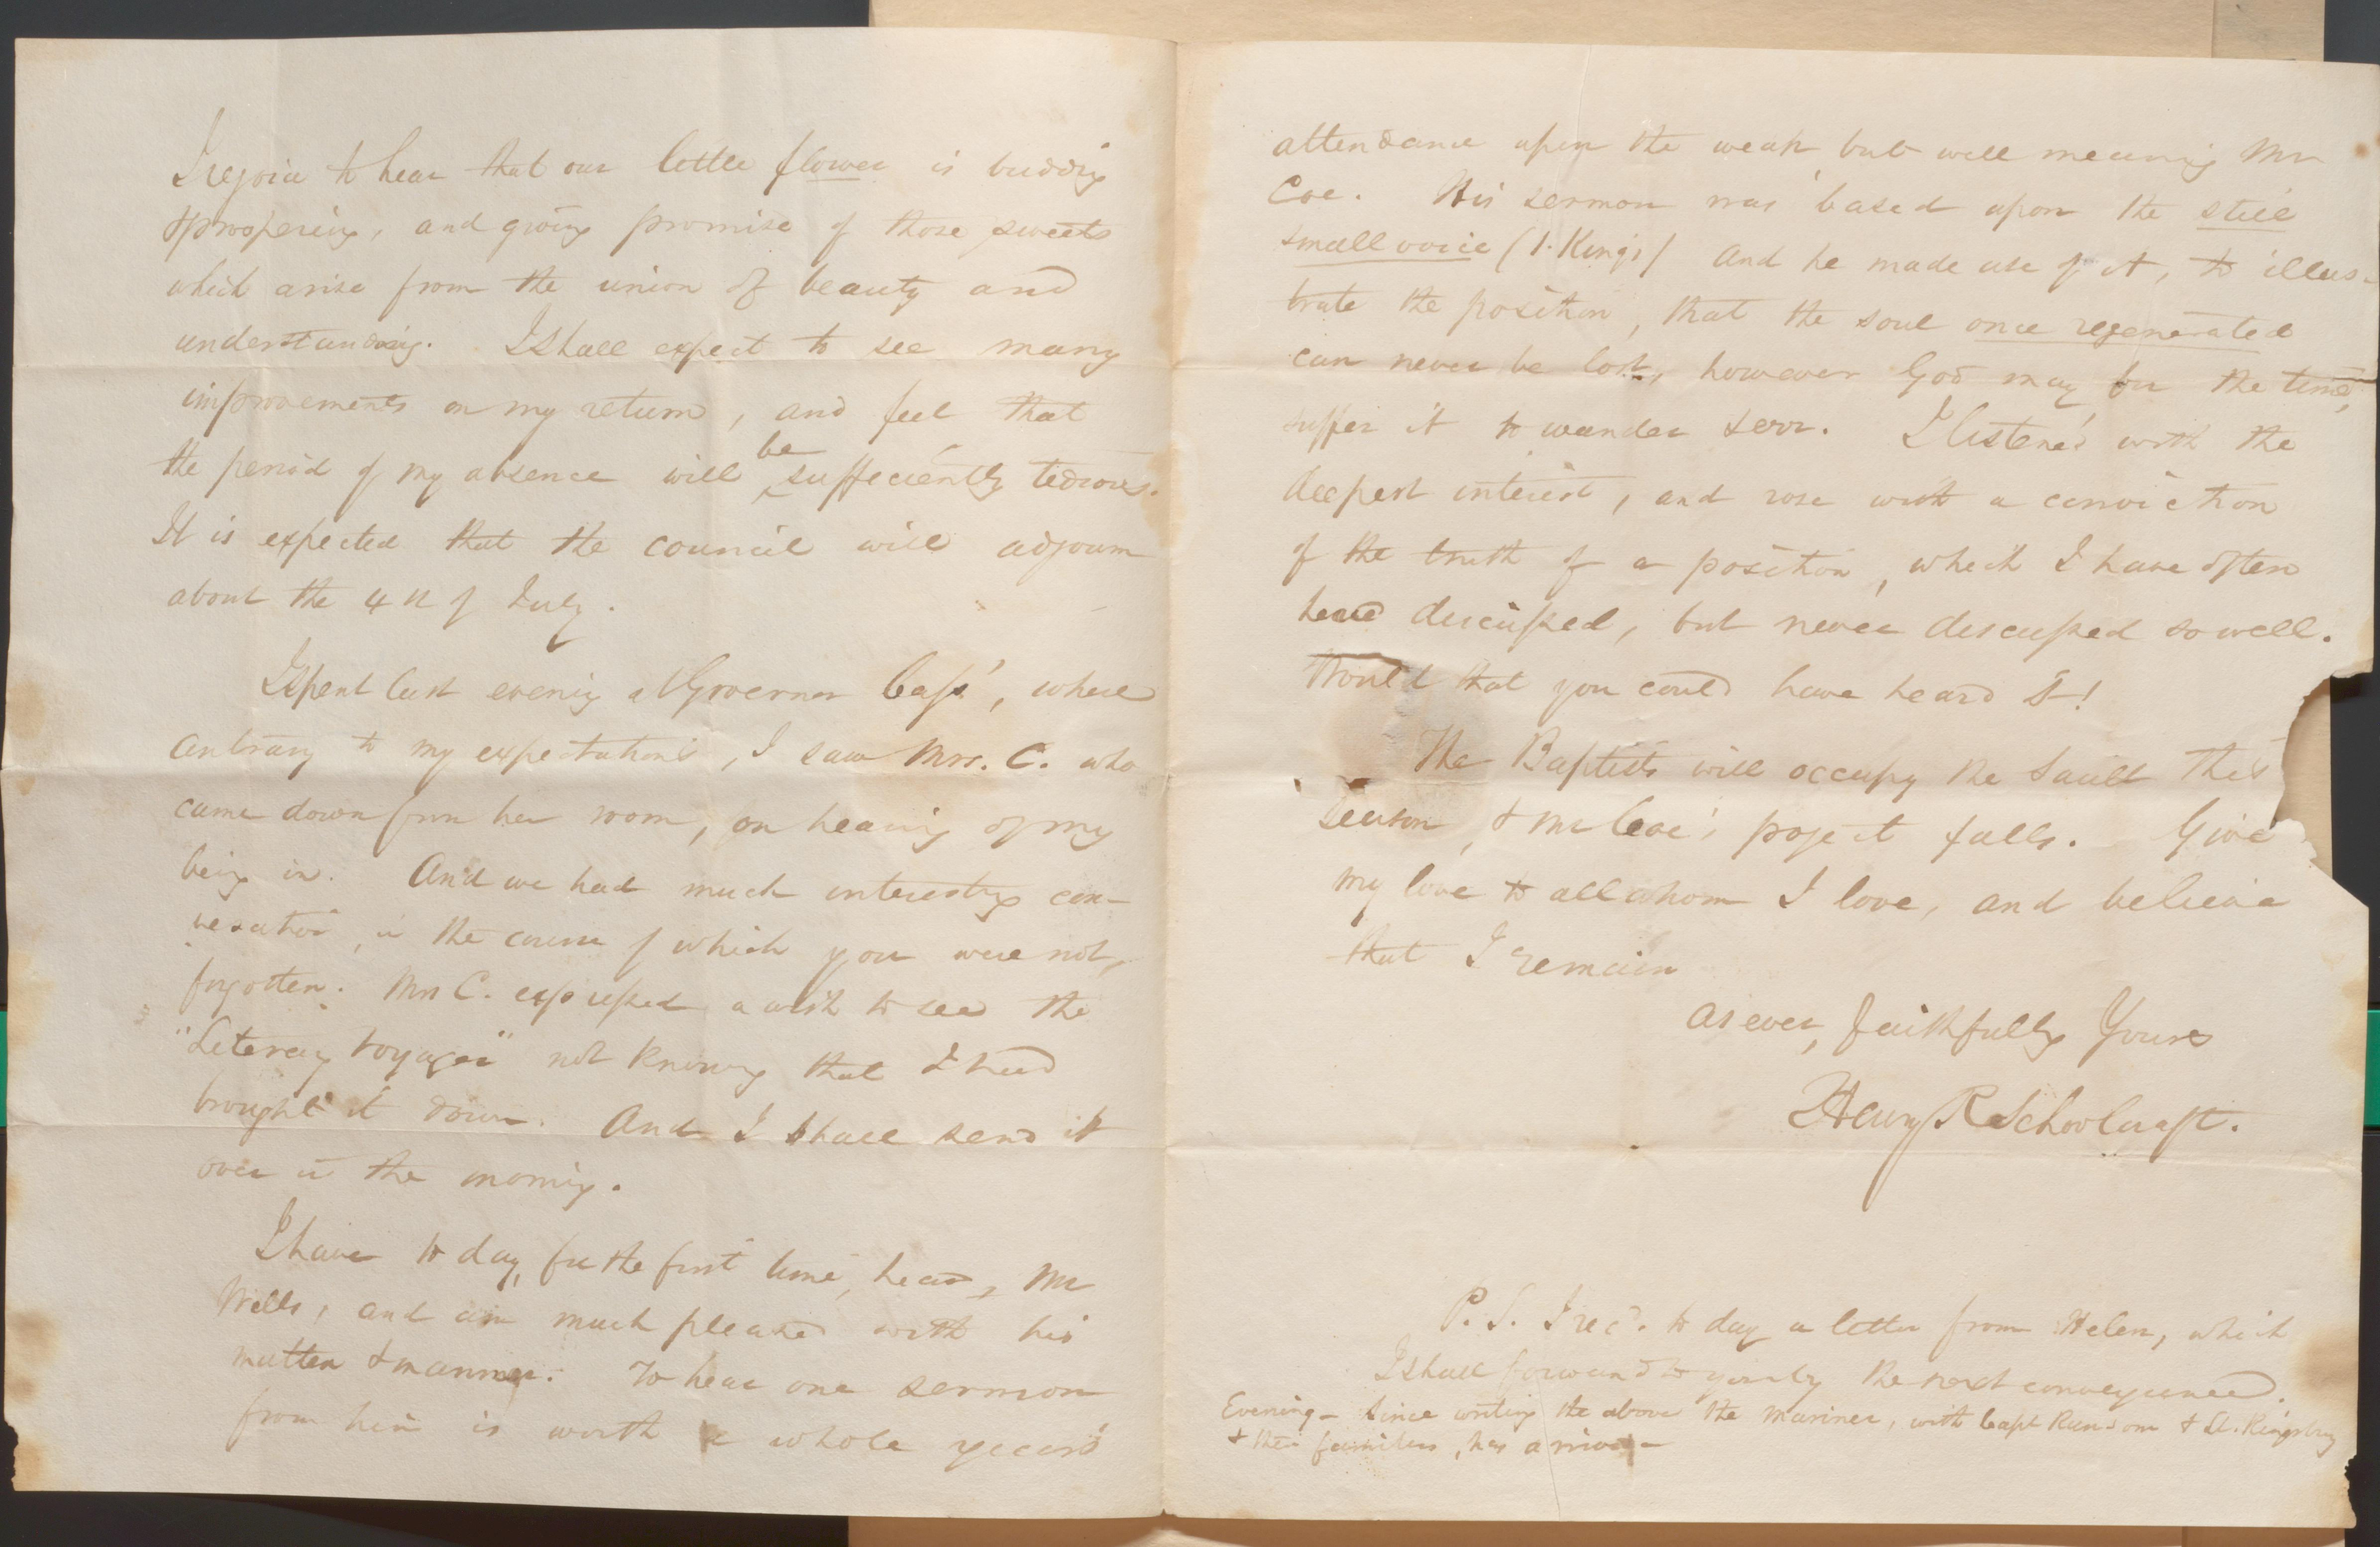 I rejoice to hear that our little flower is budding
& prospering, and giving promise of those sweets
which arise from the union of beauty and
understanding. I shall expect to see many
improvements on my return, and feel that
the period of my absence will be sufficiently tedious.
It is expected that the council will adjourn
about the 4th of July.
I spent last evening at Governor Cass', where
contrary to my expectations, I saw Mrs. C. who
came down from her room, on hearing of my
being in. And we had much interesting con-
versation, in the course of which you were not,
forgotten. Mrs C. expressed a wish to see the
"Literary Voyager" not knowing that I had
brought it down. And I shall send it
over in the morning.
I have to day, for the first time, heard, Mr
Wells, and am much pleased with his
matter & manner. To hear one sermon
from him is worth a whole years
attendance upon the weak but well meaning Mr
Coe. His sermon was based upon the still
small voice (1. Kings) And he made use of it, to illus-
trate the position, that the soul once regenerated
can never be lost, however God may for the time,
suffer it to wander & err. I listened with the
deepest interest, and rose with a conviction
of the truth of a position, which I have often
heard discussed, but never discussed so well.
Would that you could have heard it!
The Baptists will occupy the Sault this
season, & Mr Coe's project falls. Give
my love to all whom I love, and believe
that I remain
as ever, faithfully Yours
Henry R Schoolcraft.
P.S. I recd. to day a letter from Helen, which
I shall forward to you by the next conveyance.
Evening - Since writing the above the Mariner, with Capt Ransom & Lt. Kingsbury
& their families, has arrived -